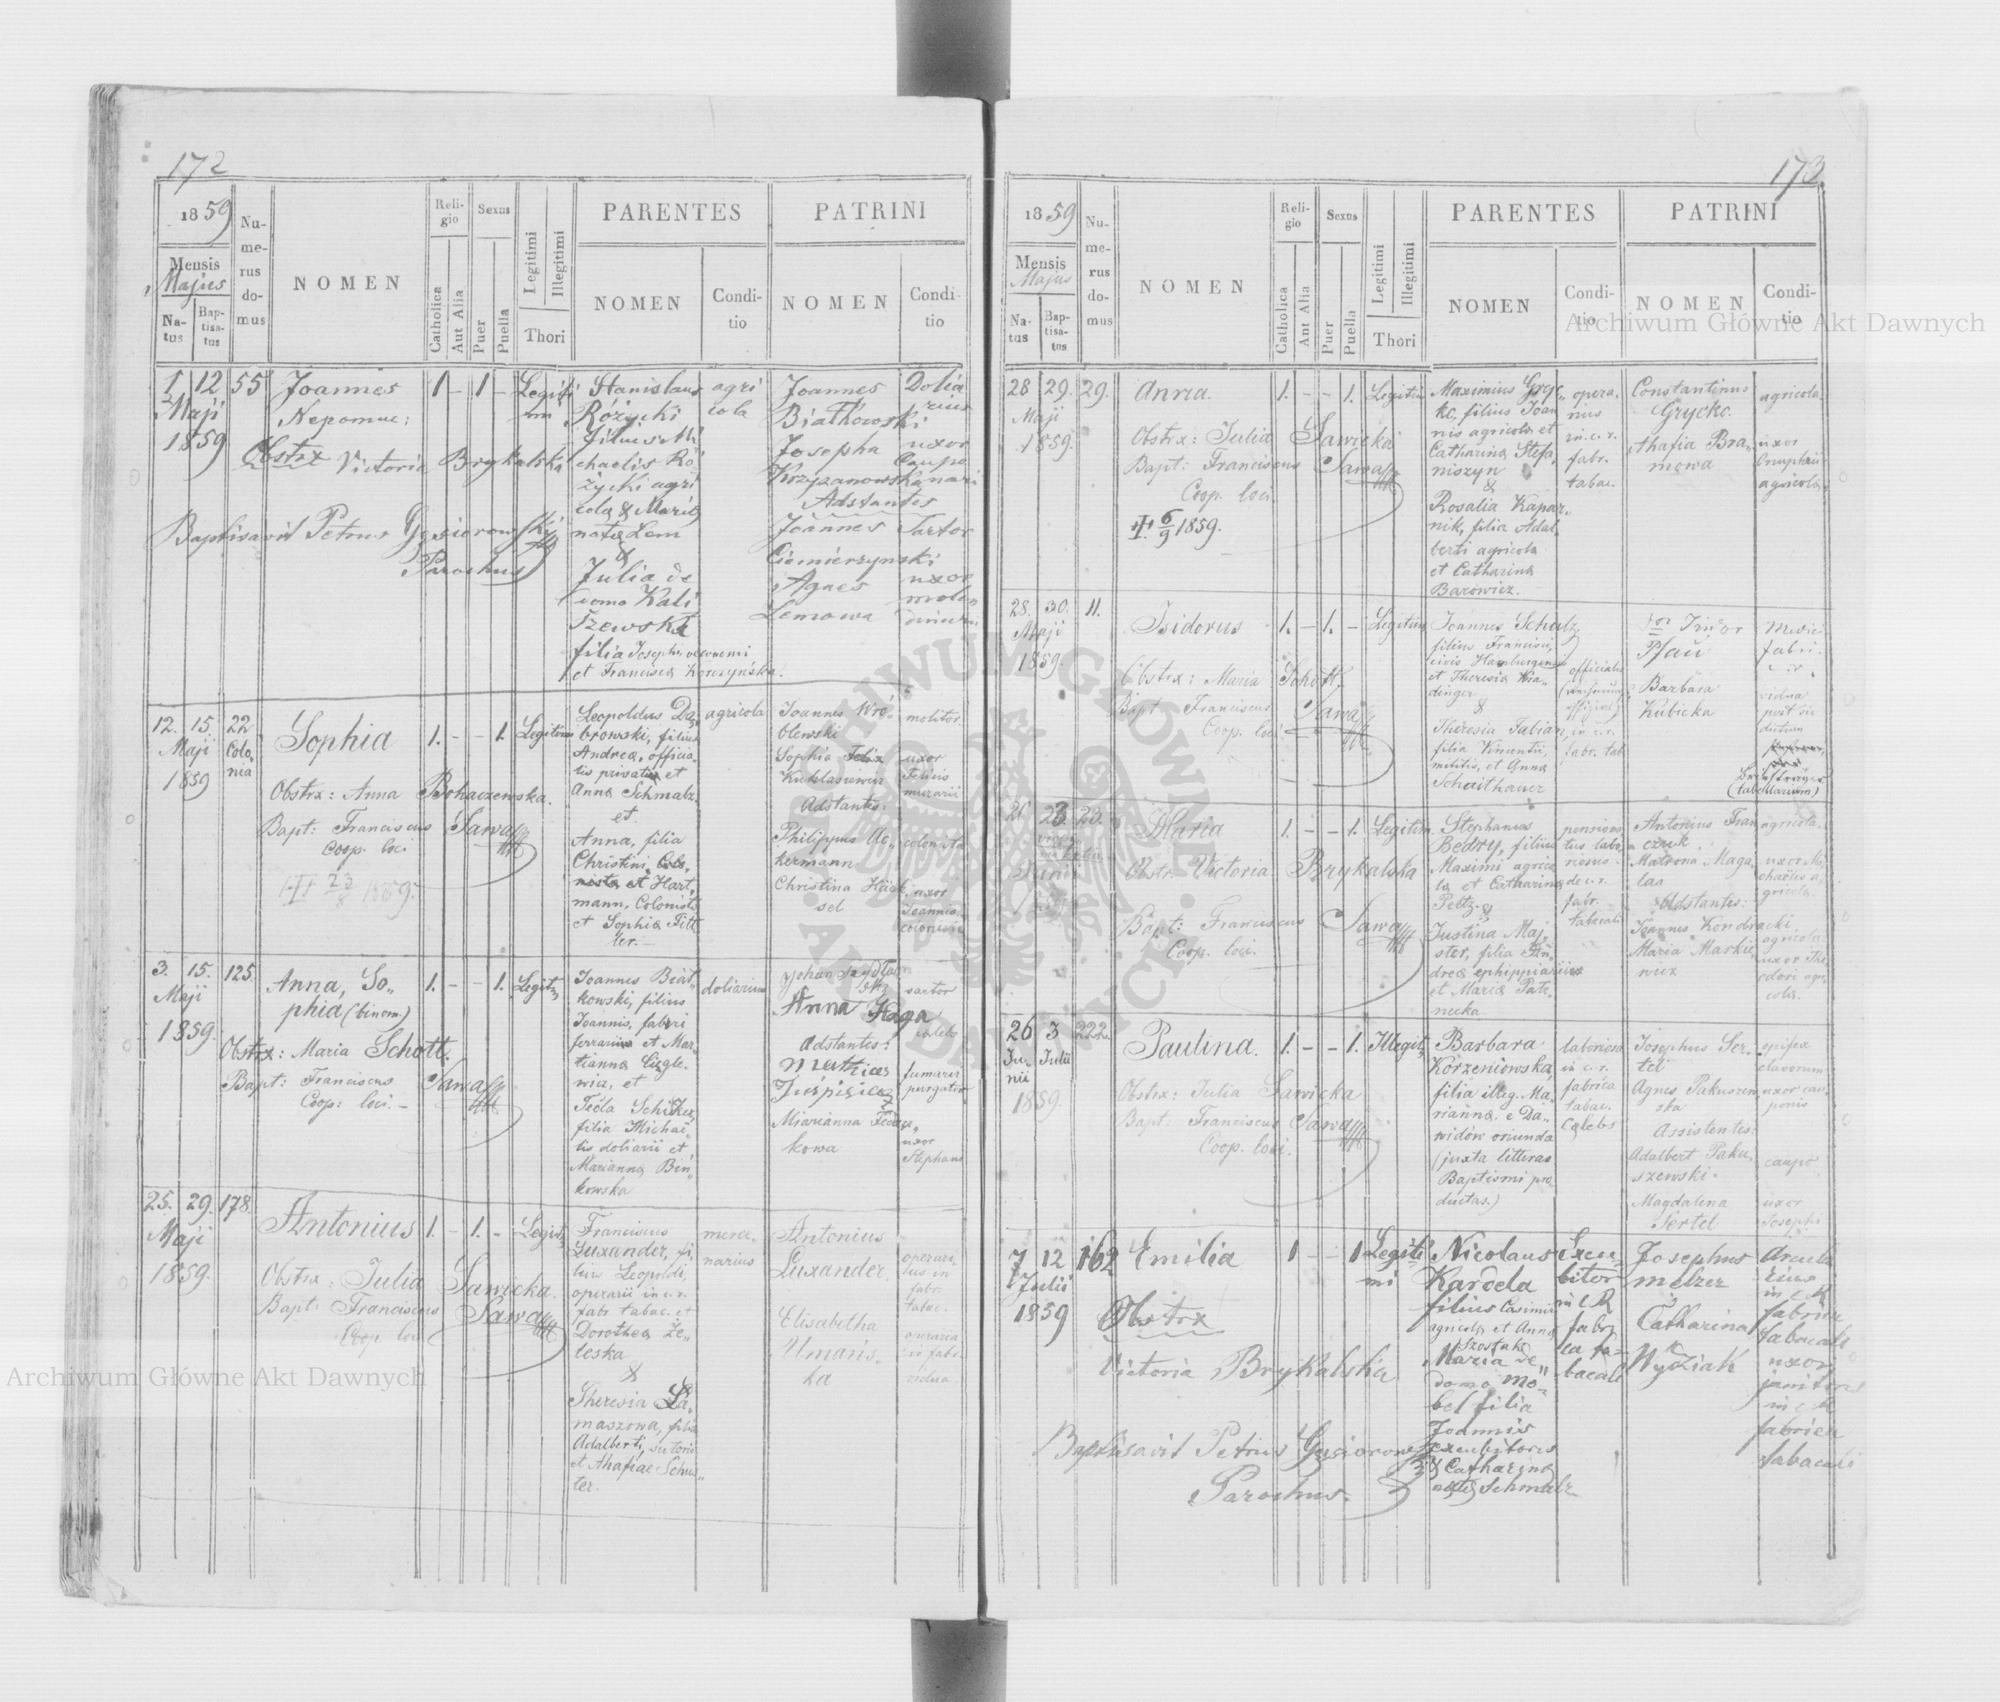 172
1859
Mensis
Majus
Na-
tus
Bap-
tisa-
tus
Nu-
me-
rus
do-
mus
NOMEN
Reli-
gio
Catholica
Aut Alia
Sexus
Puer
Puella
Legitimi
Illegitimi
Thori
PARENTES
NOMEN
Condi-
tio
PATRINI
NOMEN
Condi-
tio
1 12 55
Maji
1859
Joannes
Nepomuc:
Obstrx Victoria Brykalski
Baptisavit Petrus Gąsiorowski
Parochus
1 - 1 - Legiti
mi
Stanislaus
Różycki
filius Mi
chaelis Ró
życki agri
cola & Maria
nata Lem
&
Julia de
domo Kali
szewska
filia Josephi
et Francisca Korczyńska.
agri
cola
Joannes
Białkowski
Josepha
Krzyzanowska
Adstantes
Joannes
Ciemierzynski
Agnes
Lemowa
Dolia
rius
uxor
Caupo
nari
Sartor
uxor
12. 15. 22
Maji Colo-
nia
1859
Sophia
Obstrx: Anna Bohaczewska.
Bapt: Franciscus Sawa
Coop. loci
1859.
1. - - 1. Legitim
Leopoldus Da,
browski, filius
Andrea, officia-
lis privatus et
Anna Schmalz.
et
Anna, filia
Christini, Colo,
nista et Hart,
mann, Colonista
et Sophia Titt
ler.
agricola
Joannes Wró-
blewski
Sophia Felix
Adstantes:
Philippus Ac,
kermann
Christina Häck
sel
molitor
uxor
Felicis
murarii
colonista
uxor
Joannis
coloniste
3. 15. 125.
Maji
1859.
Anna, So-
phia (binom.)
Obstrx: Maria Schott.
Bapt: Franciscus Sawa
Coop: loci.
1. - - 1. Legit,
Joannes Biał-
kowski, filius
Joannis, fabri
ferrarius et Mar-
tianna Cigle-
wicz, et
Teóla Schisker
filia Michae-
lis doliarii et
Marianna Biń-
kowska
doliarius
Anna Haga
Adstantes:
Mathias
Marianna
kowa
sartor
cælebs
fumarii
purgator
uxor
Stephani
25. 29. 178.
Maji
1859.
Antonius
Obstrx: Julia Sawicka.
Bapt: Franciscus Sawa
Coop. loci
1. - 1. - Legit,
Franciscus
Luxander, fi,
lius Leopoldi,
operarii in c.r.
fabr. tabac. et
Dorothea Że-
leska
&
Theresia La,
maszowa, filia
Adalberti, sutoris
et Ahafiae Schus-
ter.
merce,
narius
Antonius
Luxander,
Elisabetha
operari,
us in
fabr.
tabac.
operaria
in fabr.
vidua.
173
1859
Mensis
Majus
Na-
tus
Bap-
tisa-
tus
Nu-
me-
rus
do-
mus
NOMEN
Reli-
gio
Catholica
Aut Alia
Sexus
Puer
Puella
Legitimi
Illegitimi
Thori
PARENTES
NOMEN
Condi-
tio
PATRINI
NOMEN
Condi-
tio
28 29. 29.
Maji
1859.
Anna.
Obstrx: Julia Sawicka
Bapt: Franciscus Sawa
Coop. loci.
6/9 1859.
1. - - 1. Legitim
Maximius Gryc-
ko, filius Joan
nis agricola et
Catharina Stefa,
niszyn
&
Rosalia Kapar-
nik, filia Adal-
berti agricola
et Catharina
Barowicz.
opera-
rius
in c.r.
fabr.
tabac.
Constantinus
Grycko.
Ahafia Bra,
mowa
agricola
uxor
Onuphrii
agricola
28. 30. 11.
Maji
1859
Isidorus
Obstrx: Maria Schott,
Bapt Franciscus Sawa
Coop. loci
1. - 1. - Legitim
Joannes Scholz,
filius Francisci,
civis Hamburgensis
et Theresia Kra-
dinger
&
Theresia Fabian,
filia Vincentii,
militis, et Anna
Scheithauer
officialis
in c.r.
fabr. tab.
Pfau
Barbara
Kubicka
Medic
fabri.
vidua
(tabellarium)
21. 23 23.
Junii
Maria
Obstr. Victoria Brykalska
Bapt: Franciscus Sawa
Coop. loci.
1. - - 1. Legitim.
Stephanus
Bedry, filius
Maximi agrico
la et Catharina
Peltz. &
Justina Maj-
ster, filia An-
drea ephippiarius
et Maria Patr-
necka
pensiona
tus labo
riosus
de c.r.
fabr.
tabacali
Antonius Fran
czuk.
Matrona Maga,
las
Adstantes:
Joannes Kondracki
Maria Markie,
wicz
agricola.
uxor Mi
chaelis a,
gricola.
agricola
uxor The
odori agri
cola.
26 3 222.
Ju- Julii
nii
1859.
Paulina.
Obstrx: Julia Sawicka
Bapt: Franciscus Sawa
Coop. loci.
1. - - 1. Illegit,
Barbara
Korzeniowska,
filia illeg. Ma,
rianna e Da-
widów oriunda
(juxta litteras
Baptismi pro
ductas.)
laboriosa
in c.r.
fabrica
tabac.
cælebs
Josephus Ser-
tel
Agnes Pakuszew
ska
Assistentes:
Adalbert Paku,
szewski.
Magdalena
Sertel
opifex
clavorum
uxor cau-
ponis
caupo
uxor
Josephi
7 12 162
Julii
1859
Emilia
Obstrx
Victoria Brykalska
Baptisavit Petrus Gąsiorowski
Parochus.
1 - - 1 Legiti
mi
Nicolaus
Kardela
filius Casimiri
agricola et Anna
Szostak
Maria de
domo Mö-
bel filia
Joannis
excubitoris
& Catharina
nata Schmalz
Excu
bitor
in C R
fabri
ca ta-
bacali
Josephus
Melzer
Catharina
Wydziak
Arcula
rius
in C R
fabrica
tabacali
uxor
janitoris
in C R
fabrica
tabacali
Archiwum Główne Akt Dawnych
Archiwum Główne Akt Dawnych
ARCHIWUM GŁÓWNE AKT DAWNYCH